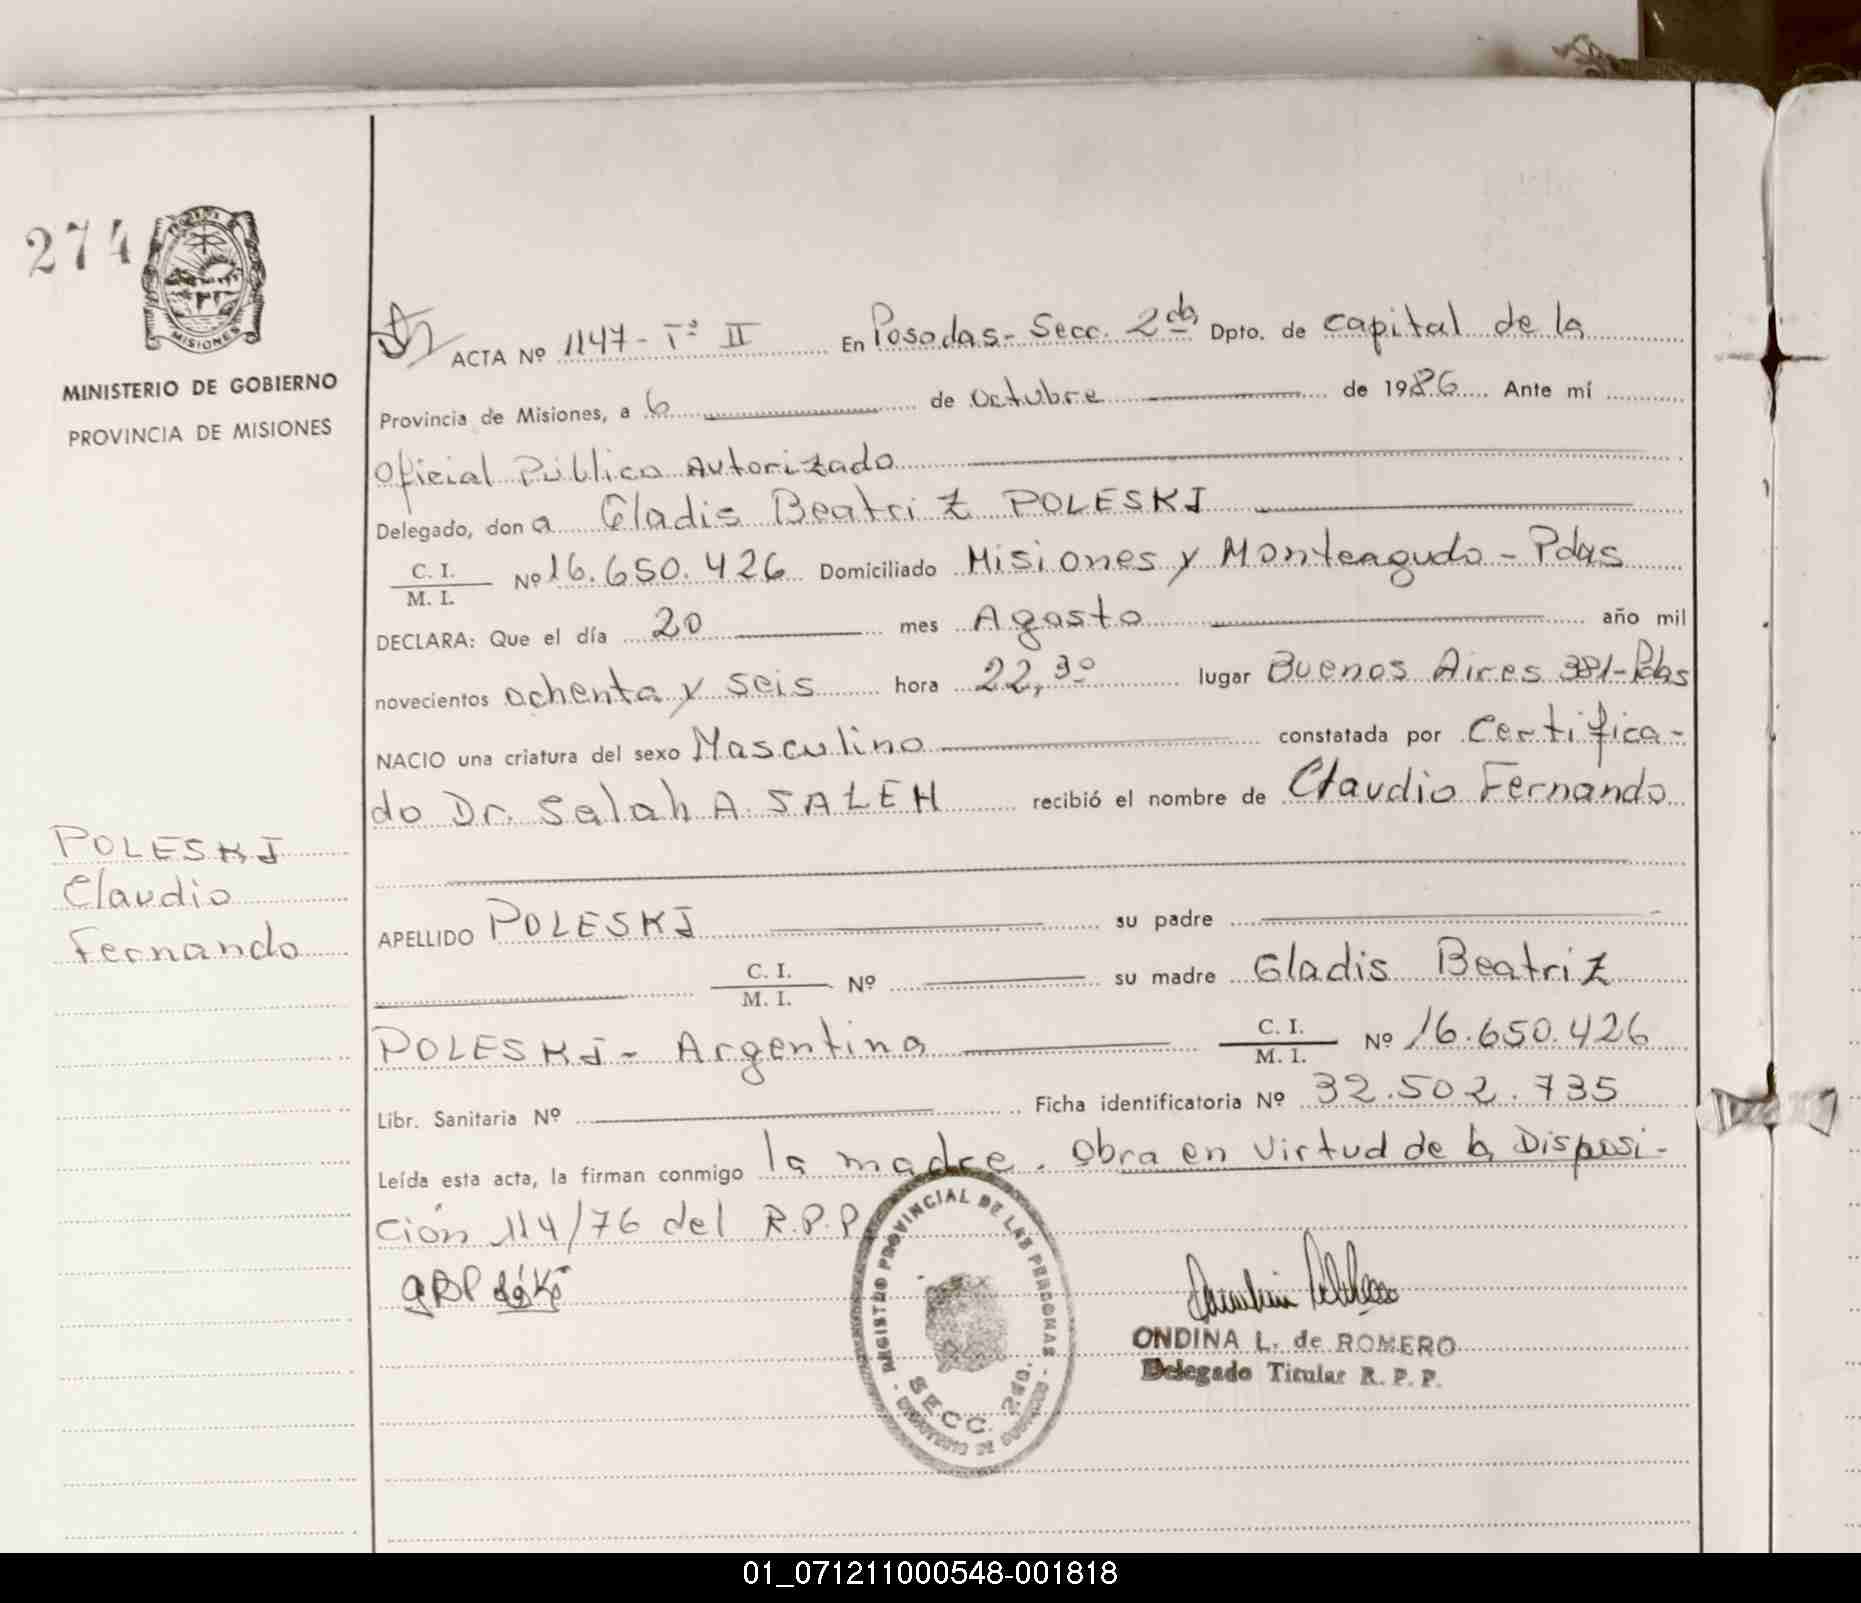 274
MISIONES
MINISTERIO DE GOBIERNO
PROVINCIA DE MISIONES
ACTA Nº 1147 - Tº II En Posadas - Secc. 2da Dpto. de capital de la
Provincia de Misiones, a 6 de Octubre de 1986 Ante mí
Oficial Público Autorizado
Delegado, don a Gladis Beatriz POLESKI
C. I.
M. I. Nº 16.650.426 Domiciliado Misiones y Monteagudo - Pdas
DECLARA: Que el día 20 mes Agosto año mil
novecientos ochenta y seis hora 22,30 lugar Buenos Aires 381-Pdas
NACIO una criatura del sexo Masculino constatada por Certifica-
do Dr. Salah A. SALEH recibió el nombre de Claudio Fernando
POLESKI
Claudio
Fernando
APELLIDO POLESKI su padre
C. I.
M. I. Nº su madre Gladis Beatriz
POLESKI - Argentina C. I.
M. I. Nº 16.650.426
Libr. Sanitaria Nº Ficha identificatoria Nº 32.502.735
Leída esta acta, la firman conmigo la madre. Obra en virtud de la Disposi-
ción 114/76 del R.P.P
REGISTRO PROVINCIAL DE LAS PERSONAS
SECC. 2da.
ONDINA L. de ROMERO
Delegado Titular R. P. P.
01_071211000548-001818